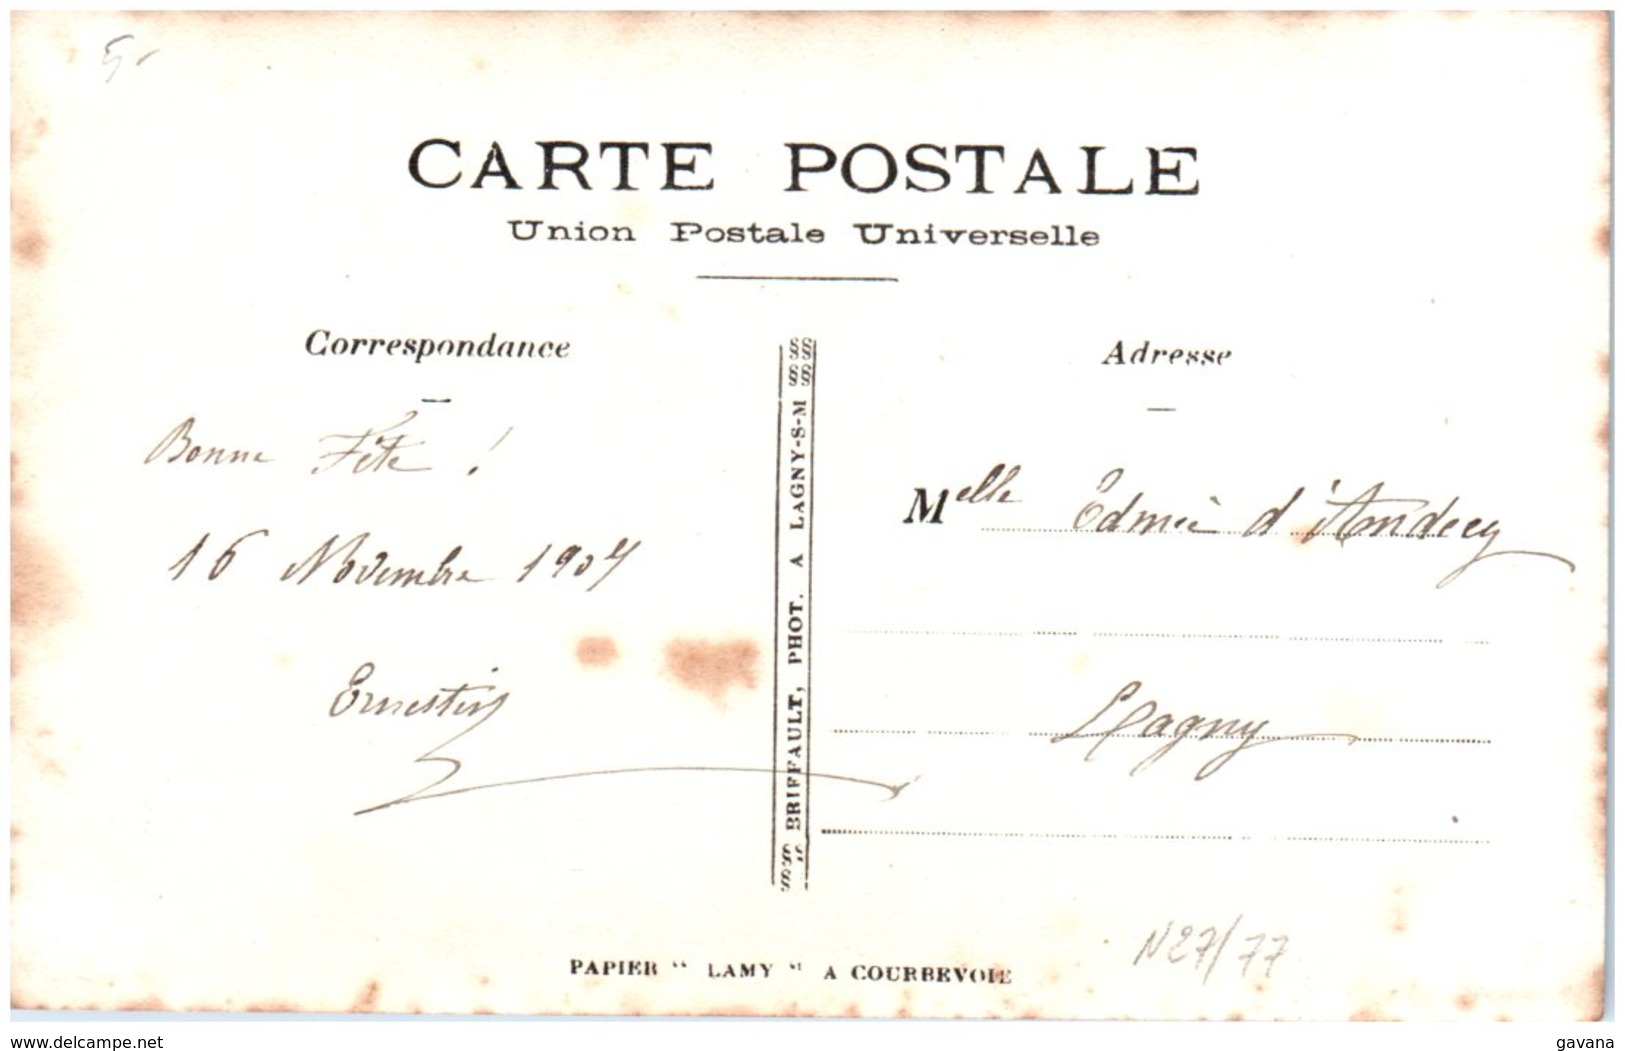 CARTE POSTALE
Union Postale Universelle
Correspondance
Bonne Fête !
16 Novembre 1907
Ernestin
§§ BRIFFAULT, PHOT. A LAGNY-S-M §§
Adresse
Melle Edmée d'Andecy
Lagny
N27/77
PAPIER "LAMY" A COURBEVOIE
www.delcampe.net
gavana